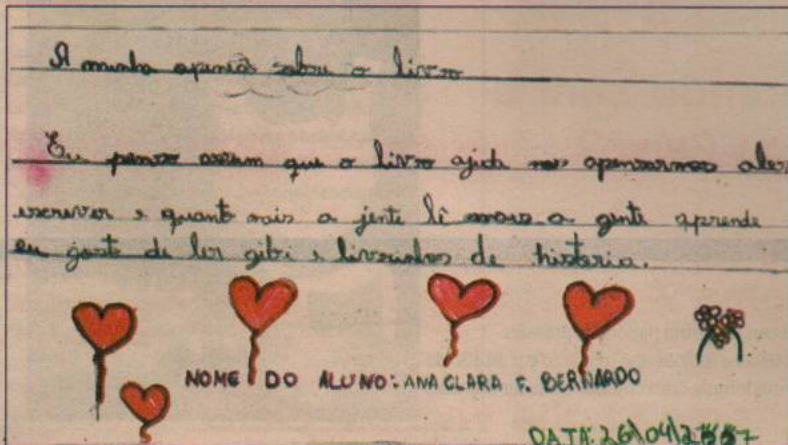 A minha apinião sobre o livro
Eu penso assim que o livro ajida nos apensarmos aler
escrever e quanto mais a jente lê mais a gente aprende
eu gosto de ler gibi e livrinhos de historia.
NOME DO ALUNO: ANA CLARA F. BERNARDO
DATA: 26/04/2